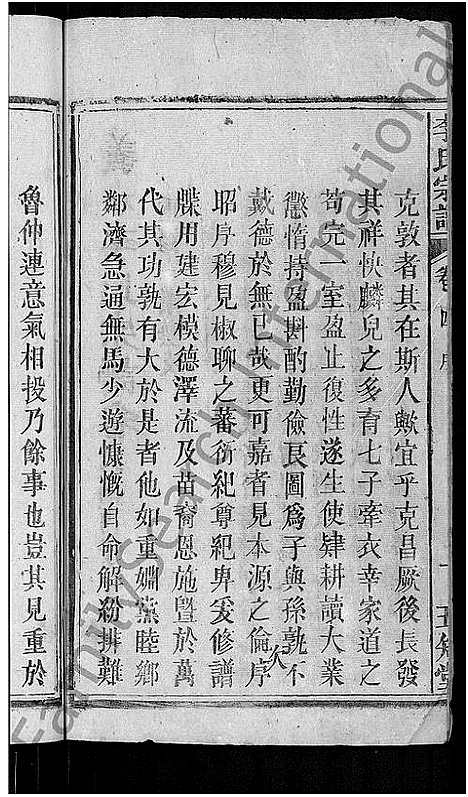 李氏宗譜 卷四 序
克敦者其在斯人歟宜乎克昌厥後長發
其祥快麟兒之多育七子牽衣幸家道之
苟完一室盈止復性遂生使肄耕讀大業
懲惰持盈斟酌勤儉良圖爲子與孫孰不
戴德於無已哉更可嘉者見本源之倫序
欠
昭序穆見椒聊之蕃衍紀尊紀卑爰修譜
牒用建宏模德澤流及苗裔恩施曁於萬
代其功孰有大於是者他如重婣蕪睦鄉
鄰濟急通無馬少遊慷慨自命解紛排難
魯仲連意氣相投乃餘事也豈其見重於
FamilySearch International